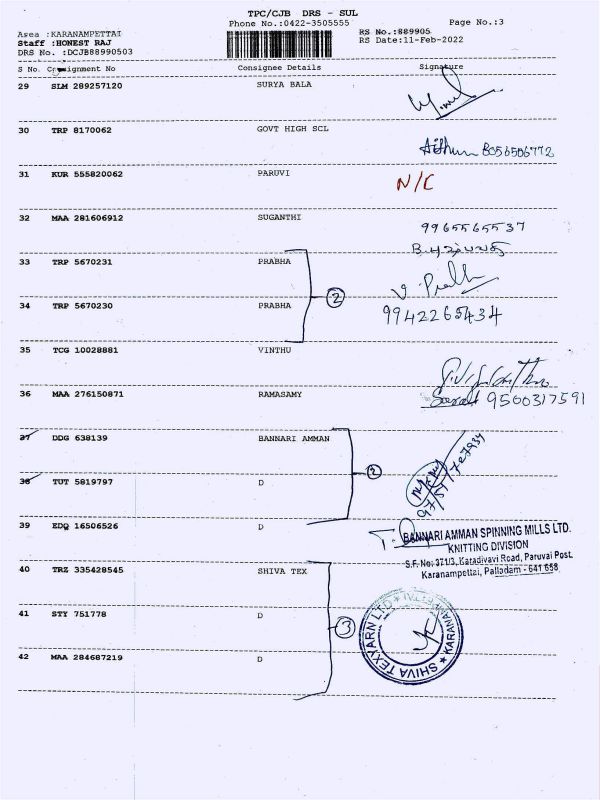 TPC/CJB DRS - SUL
Phone No.:0422-3505555 Page No.:3
Area :KARANAMPETTAI RS No.:889905
Staff :HONEST RAJ RS Date:11-Feb-2022
DRS No. :DCJB88990503
S No. Consignment No Consignee Details Signature
29 SLM 289257120 SURYA BALA
30 TRP 8170062 GOVT HIGH SCL
8056506772
31 KUR 555820062 PARUVI N/C
32 MAA 281606912 SUGANTHI 9965565537
33 TRP 5670231 PRABHA
V Prabha
2
34 TRP 5670230 PRABHA 9942265434
35 TCG 10028881 VINTHU
36 MAA 276150871 RAMASAMY 9500317591
37 DDG 638139 BANNARI AMMAN
2
38 TUT 5819797 D
39 EDQ 16506526 D
BANNARI AMMAN SPINNING MILLS LTD.
KNITTING DIVISION
S.F. No: 371/3, Karadivavi Road, Paruvai Post.
Karanampettai, Palladam - 641 658
40 TRZ 335428545 SHIVA TEX
41 STY 751778 D
3
SHIVA TEXYARN LTD ★ KARANAMPETTAI ★
42 MAA 284687219 D